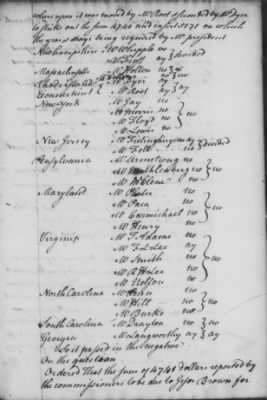 where upon it was moved by Mr Root seconded by Mr Dyer
to strike out the sum 4741 and insert on which
the yeas & nays being required by Mr president
New hampshire Mr Whipple no } divided
Mr Frost ay
Massachusetts Mr Holten no
Rhode island Mr no
Connecticut Mr Dyer ay
Mr Root ay } ay
New York Mr Jay no
Mr Morris no } no
Mr Floyd no
Mr Lewis no
New Jersey Mr Frelinghuysen ay } divided
Mr Fell no
Pensylvania Mr Armstrong no
Mr Muhlenberg no } no
Mr McClene no
Maryland Mr no
Mr Paca no
Mr Carmichael no } no
Mr Henry no
Virginia Mr T. Adams no
Mr F. L. Lee ay
Mr Smith no } no
Mr R H Lee no
Mr no
North Carolina Mr no
Mr Hill no } no
Mr Burke no
South Carolina Mr Drayton no } no
Georgia Mr Langworthy ay } ay
So it passed in the negative
On the question
Ordered That the sum of 4741 dollars reported
by the commissioners to be due to Brown for